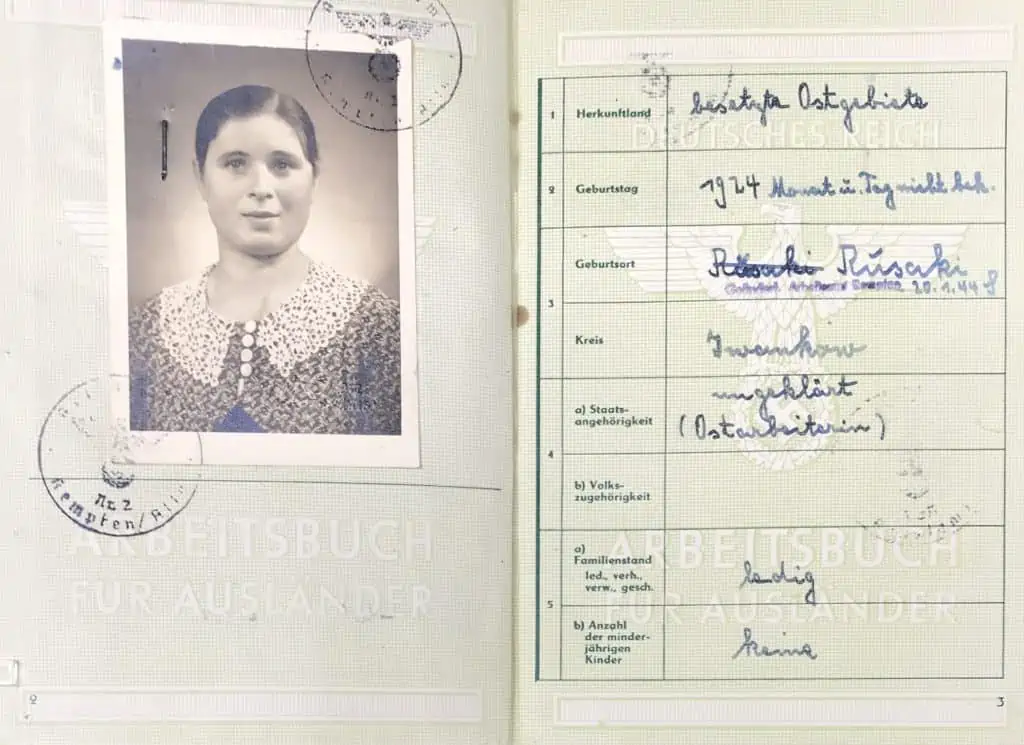 Nr. 2
Kempten/Allg
ARBEITSBUCH
FÜR AUSLÄNDER
2
DEUTSCHES REICH
1 Herkunftland besetzte Ostgebiete
2 Geburtstag 1924 Monat u. Tag nicht bek.
3 Geburtsort Rusaki Rusaki
Arbeitsamt Kempten 20.1.44
Kreis Iwankow
4 a) Staats-
angehörigkeit
ungeklärt
(Ostarbeiterin)
b) Volks-
zugehörigkeit
ARBEITSBUCH
FÜR AUSLÄNDER
5 a)
Familienstand
led., verh.,
verw., gesch.
ledig
b) Anzahl
der minder-
jährigen
Kinder
keine
3